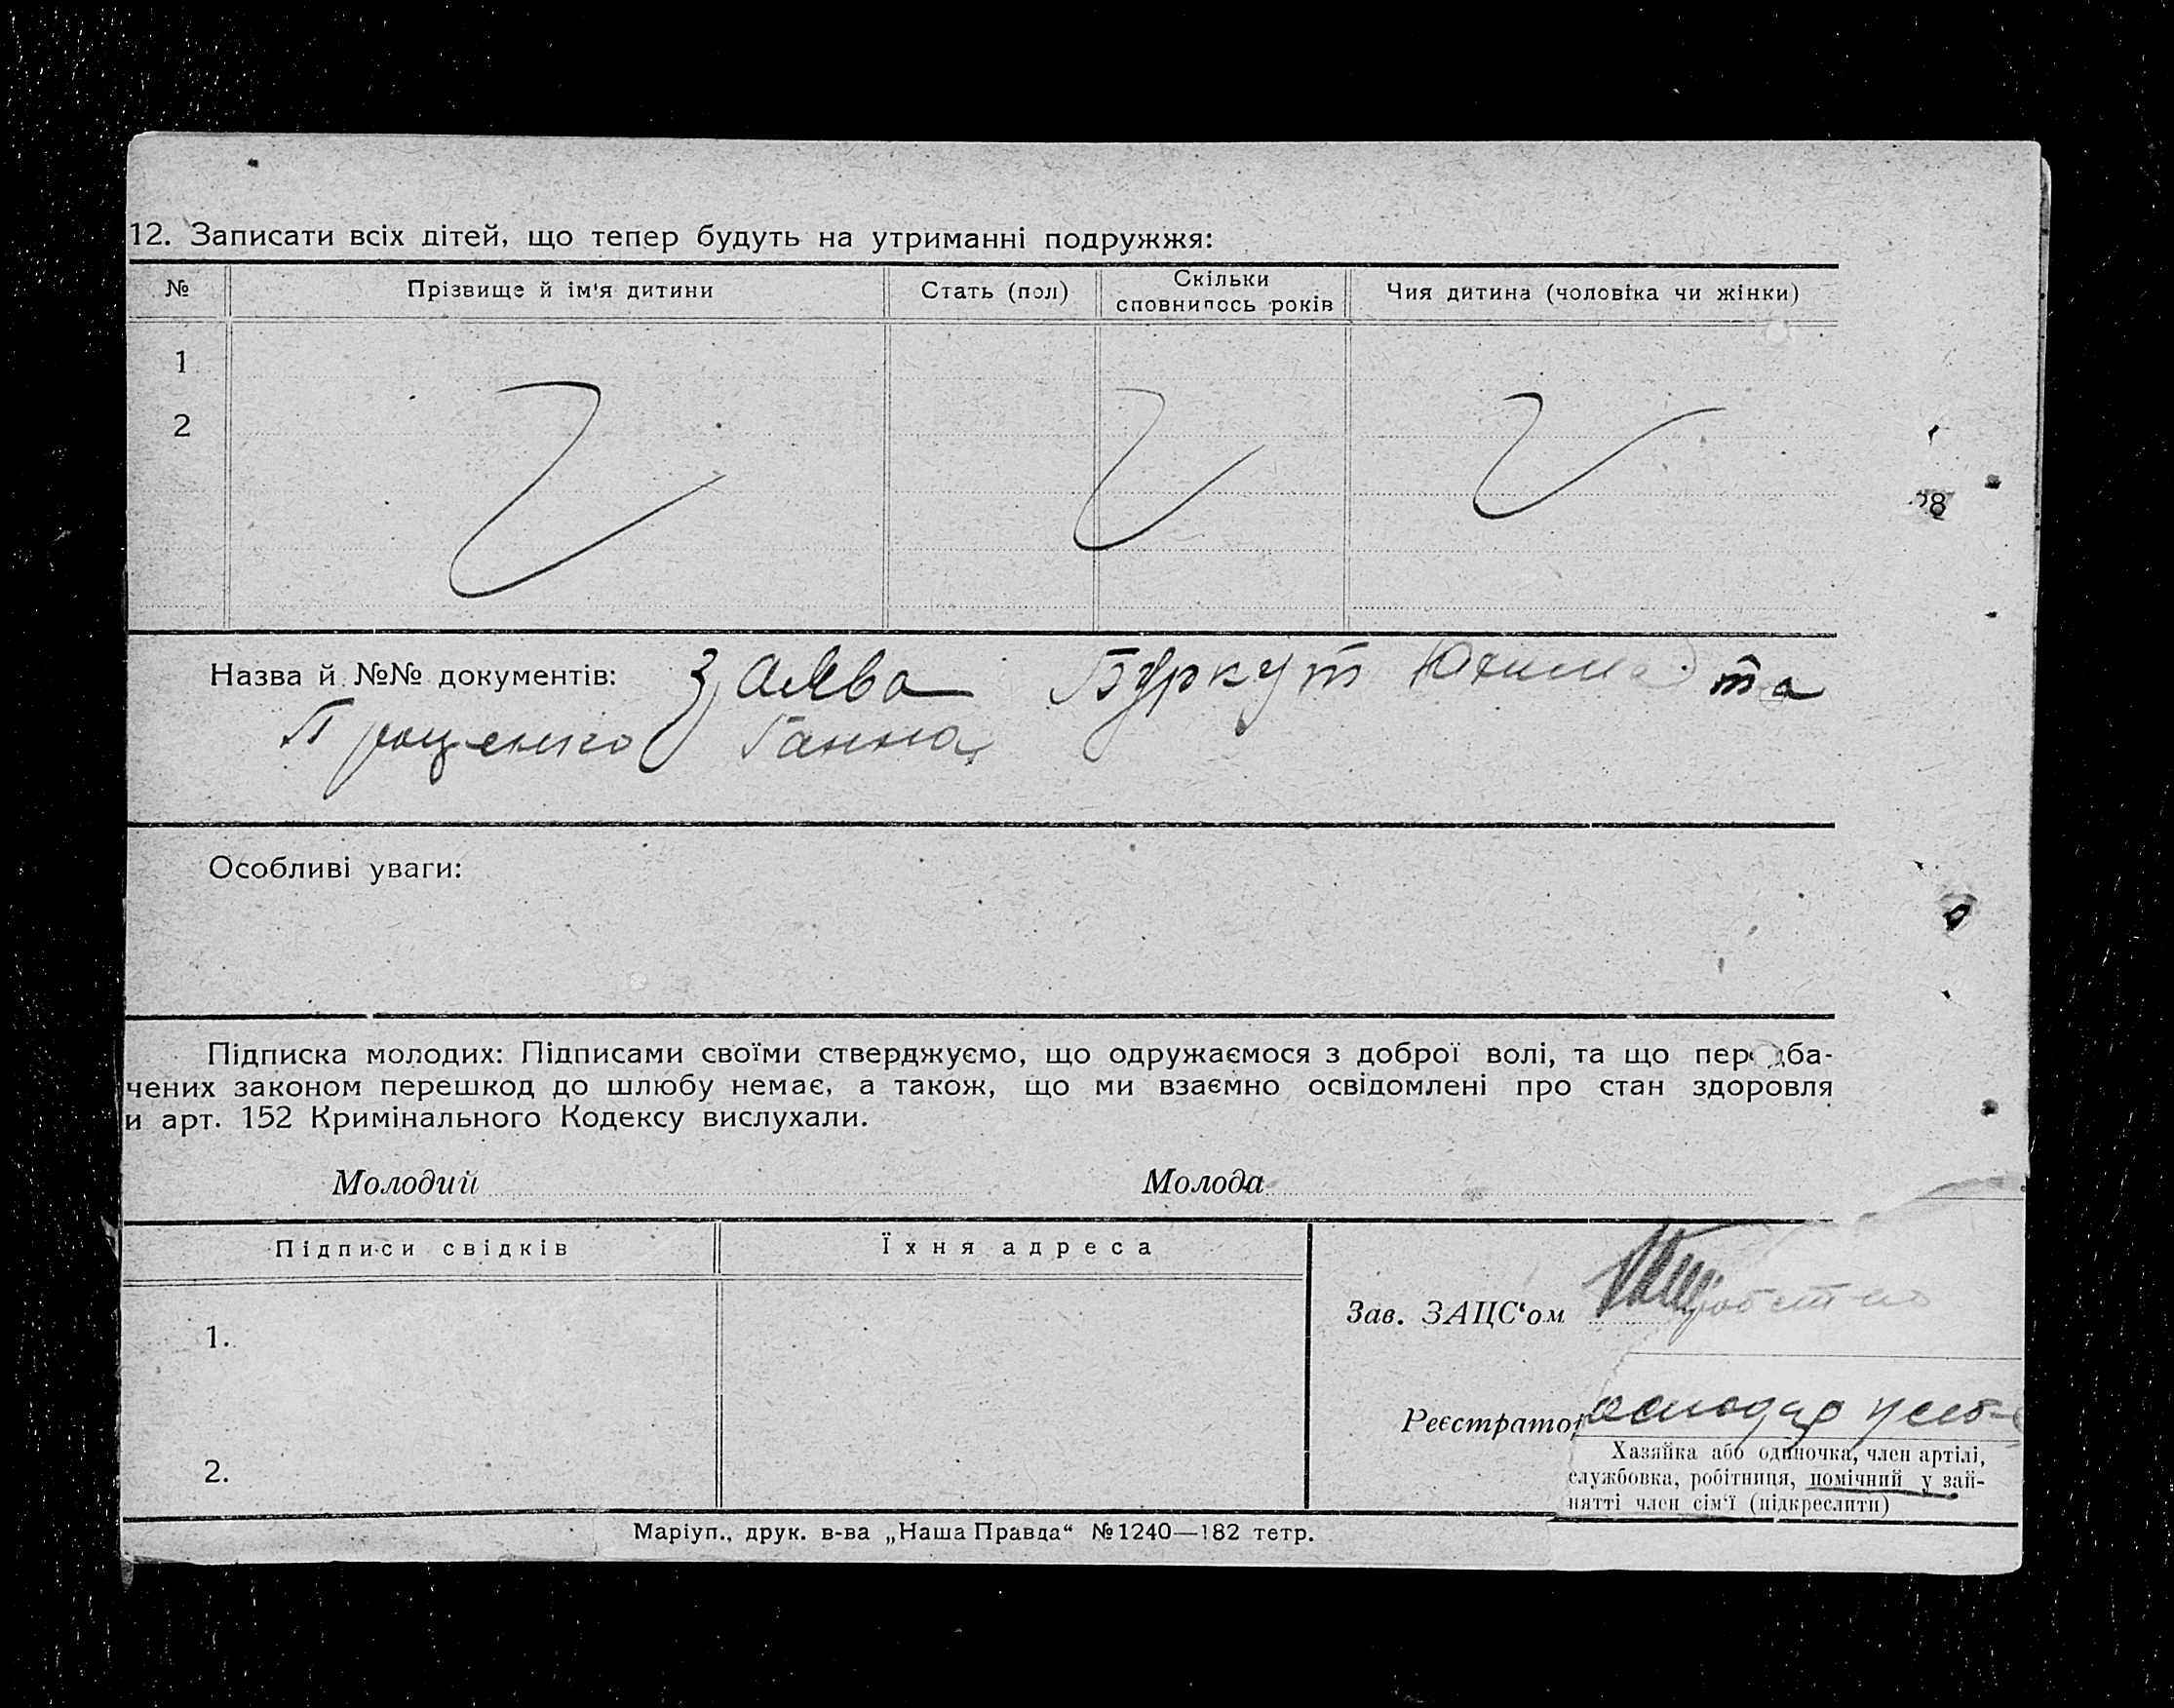 12. Записати всіх дітей, що тепер будуть на утриманні подружжя:
№ Прізвище й ім'я дитини Стать (пол) Скільки сповнилось років Чия дитина (чоловіка чи жінки)
1
2
Назва й №№ документів: Заява Буркут та
Проценко Ганна
Особливі уваги:
Підписка молодих: Підписами своїми стверджуємо, що одружаємося з доброї волі, та що передба-
чених законом перешкод до шлюбу немає, а також, що ми взаємно освідомлені про стан здоровля
и арт. 152 Кримінального Кодексу вислухали.
Молодий Молода
Підписи свідків Їхня адреса
Зав. ЗАЦС'ом
1.
Реєстратор
Хазяйка або одиночка, член артілі,
службовка, робітниця, помічний у зай-
нятті член сім'ї (підкреслити)
2.
Маріуп., друк. в-ва „Наша Правда“ №1240—182 тетр.